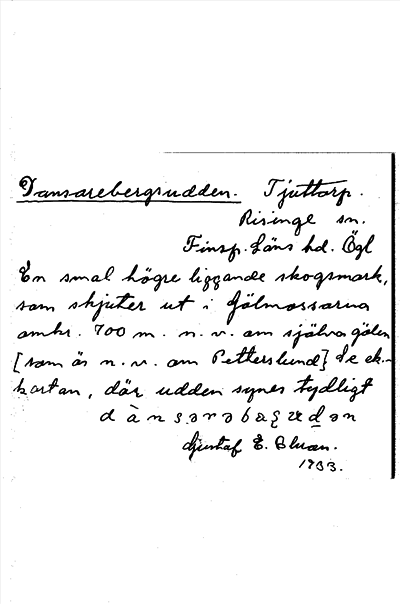 Dansarebergsudden. Tjuttorp.
Risinge sn.
Finsp. läns hd. Ögl
En smal högre liggande skogsmark,
som skjuter ut i Gölmossarna
omkr. 700 m. n. v. om själva gölen
[som är n. v. om Petterslund] Se ek.-
kartan, där udden synes tydligt
Gustaf E.
1933.